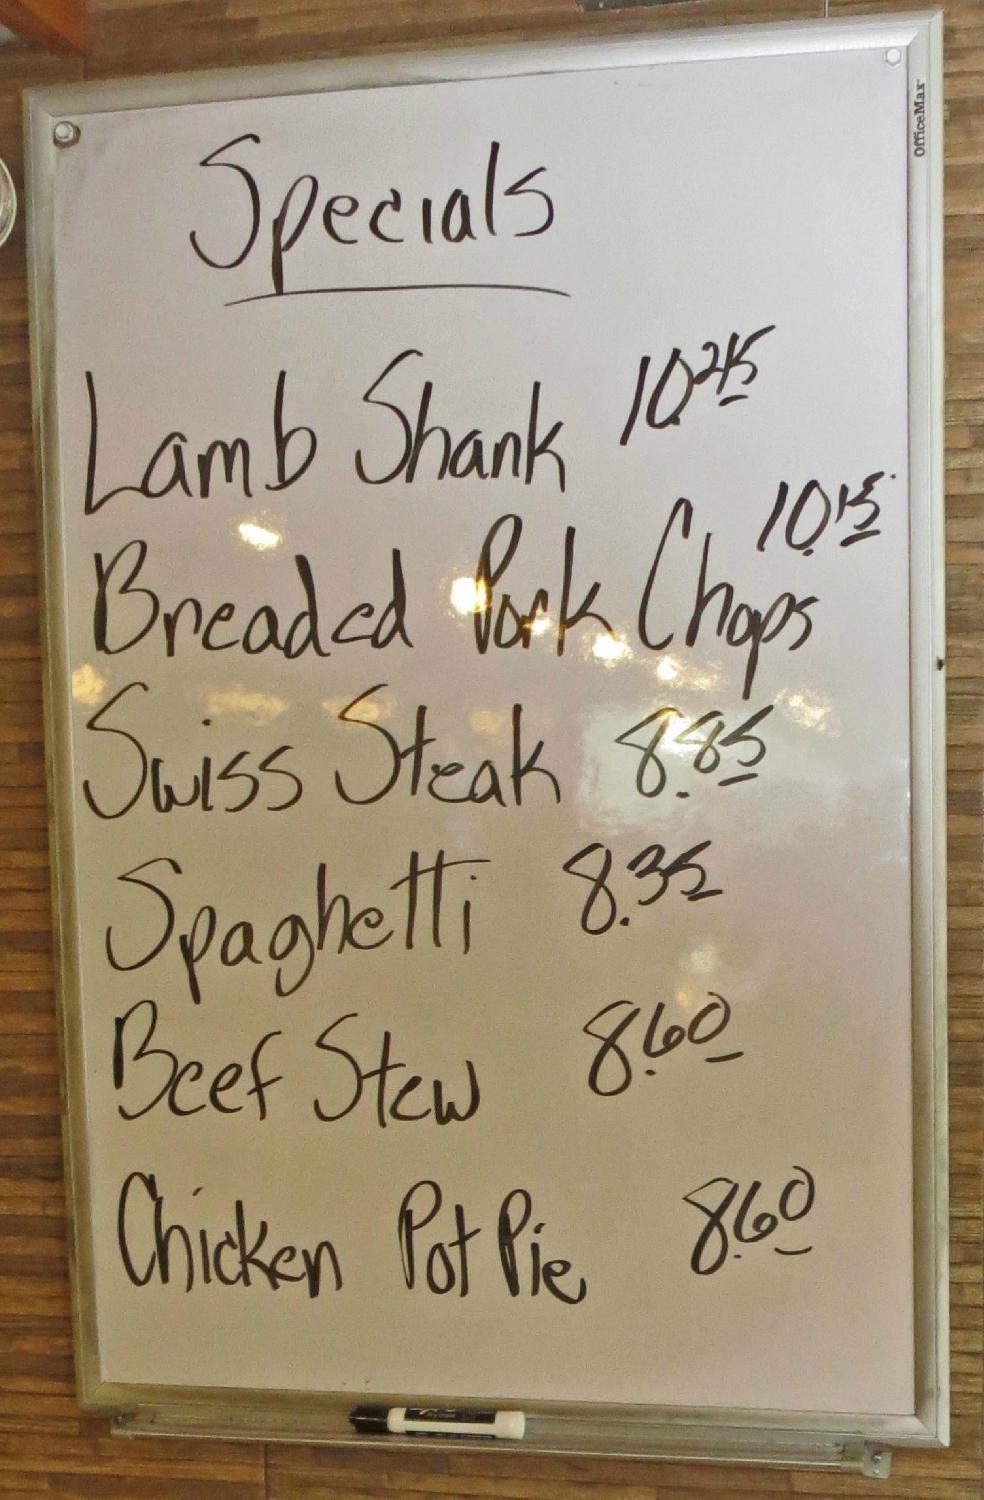 OfficeMax
Specials
Lamb Shank 10.25
Breaded Pork Chops 10.15
Swiss Steak 8.85
Spaghetti 8.35
Beef Stew 8.60
Chicken Pot Pie 8.60